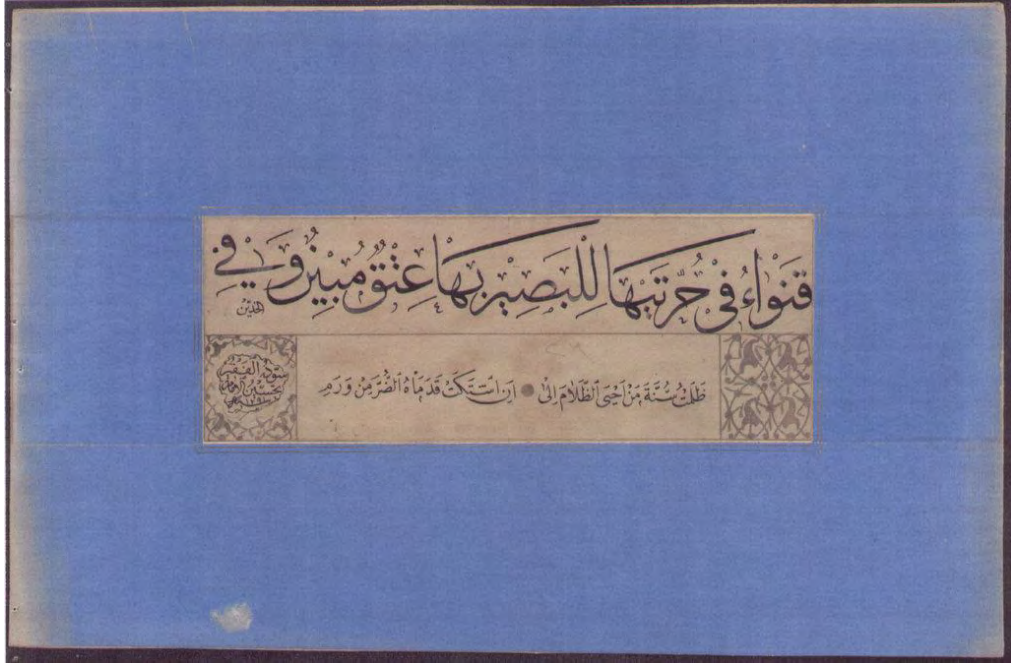 قَنْوَاءُ فِي حُرَّتَيْهَا لِلْبَصِيرِ بِهَا عِتْقٌ مُبِينٌ وَفِي
الخدين
ظَلَمْتُ سُنَّةَ مَنْ اَحْيَى الظَّلَامَ اِلٰى ۞ اَنِ اشْتَكَتْ قَدَمَاهُ الضُّرَّ مِنْ وَرَمِ
سوده الفقير